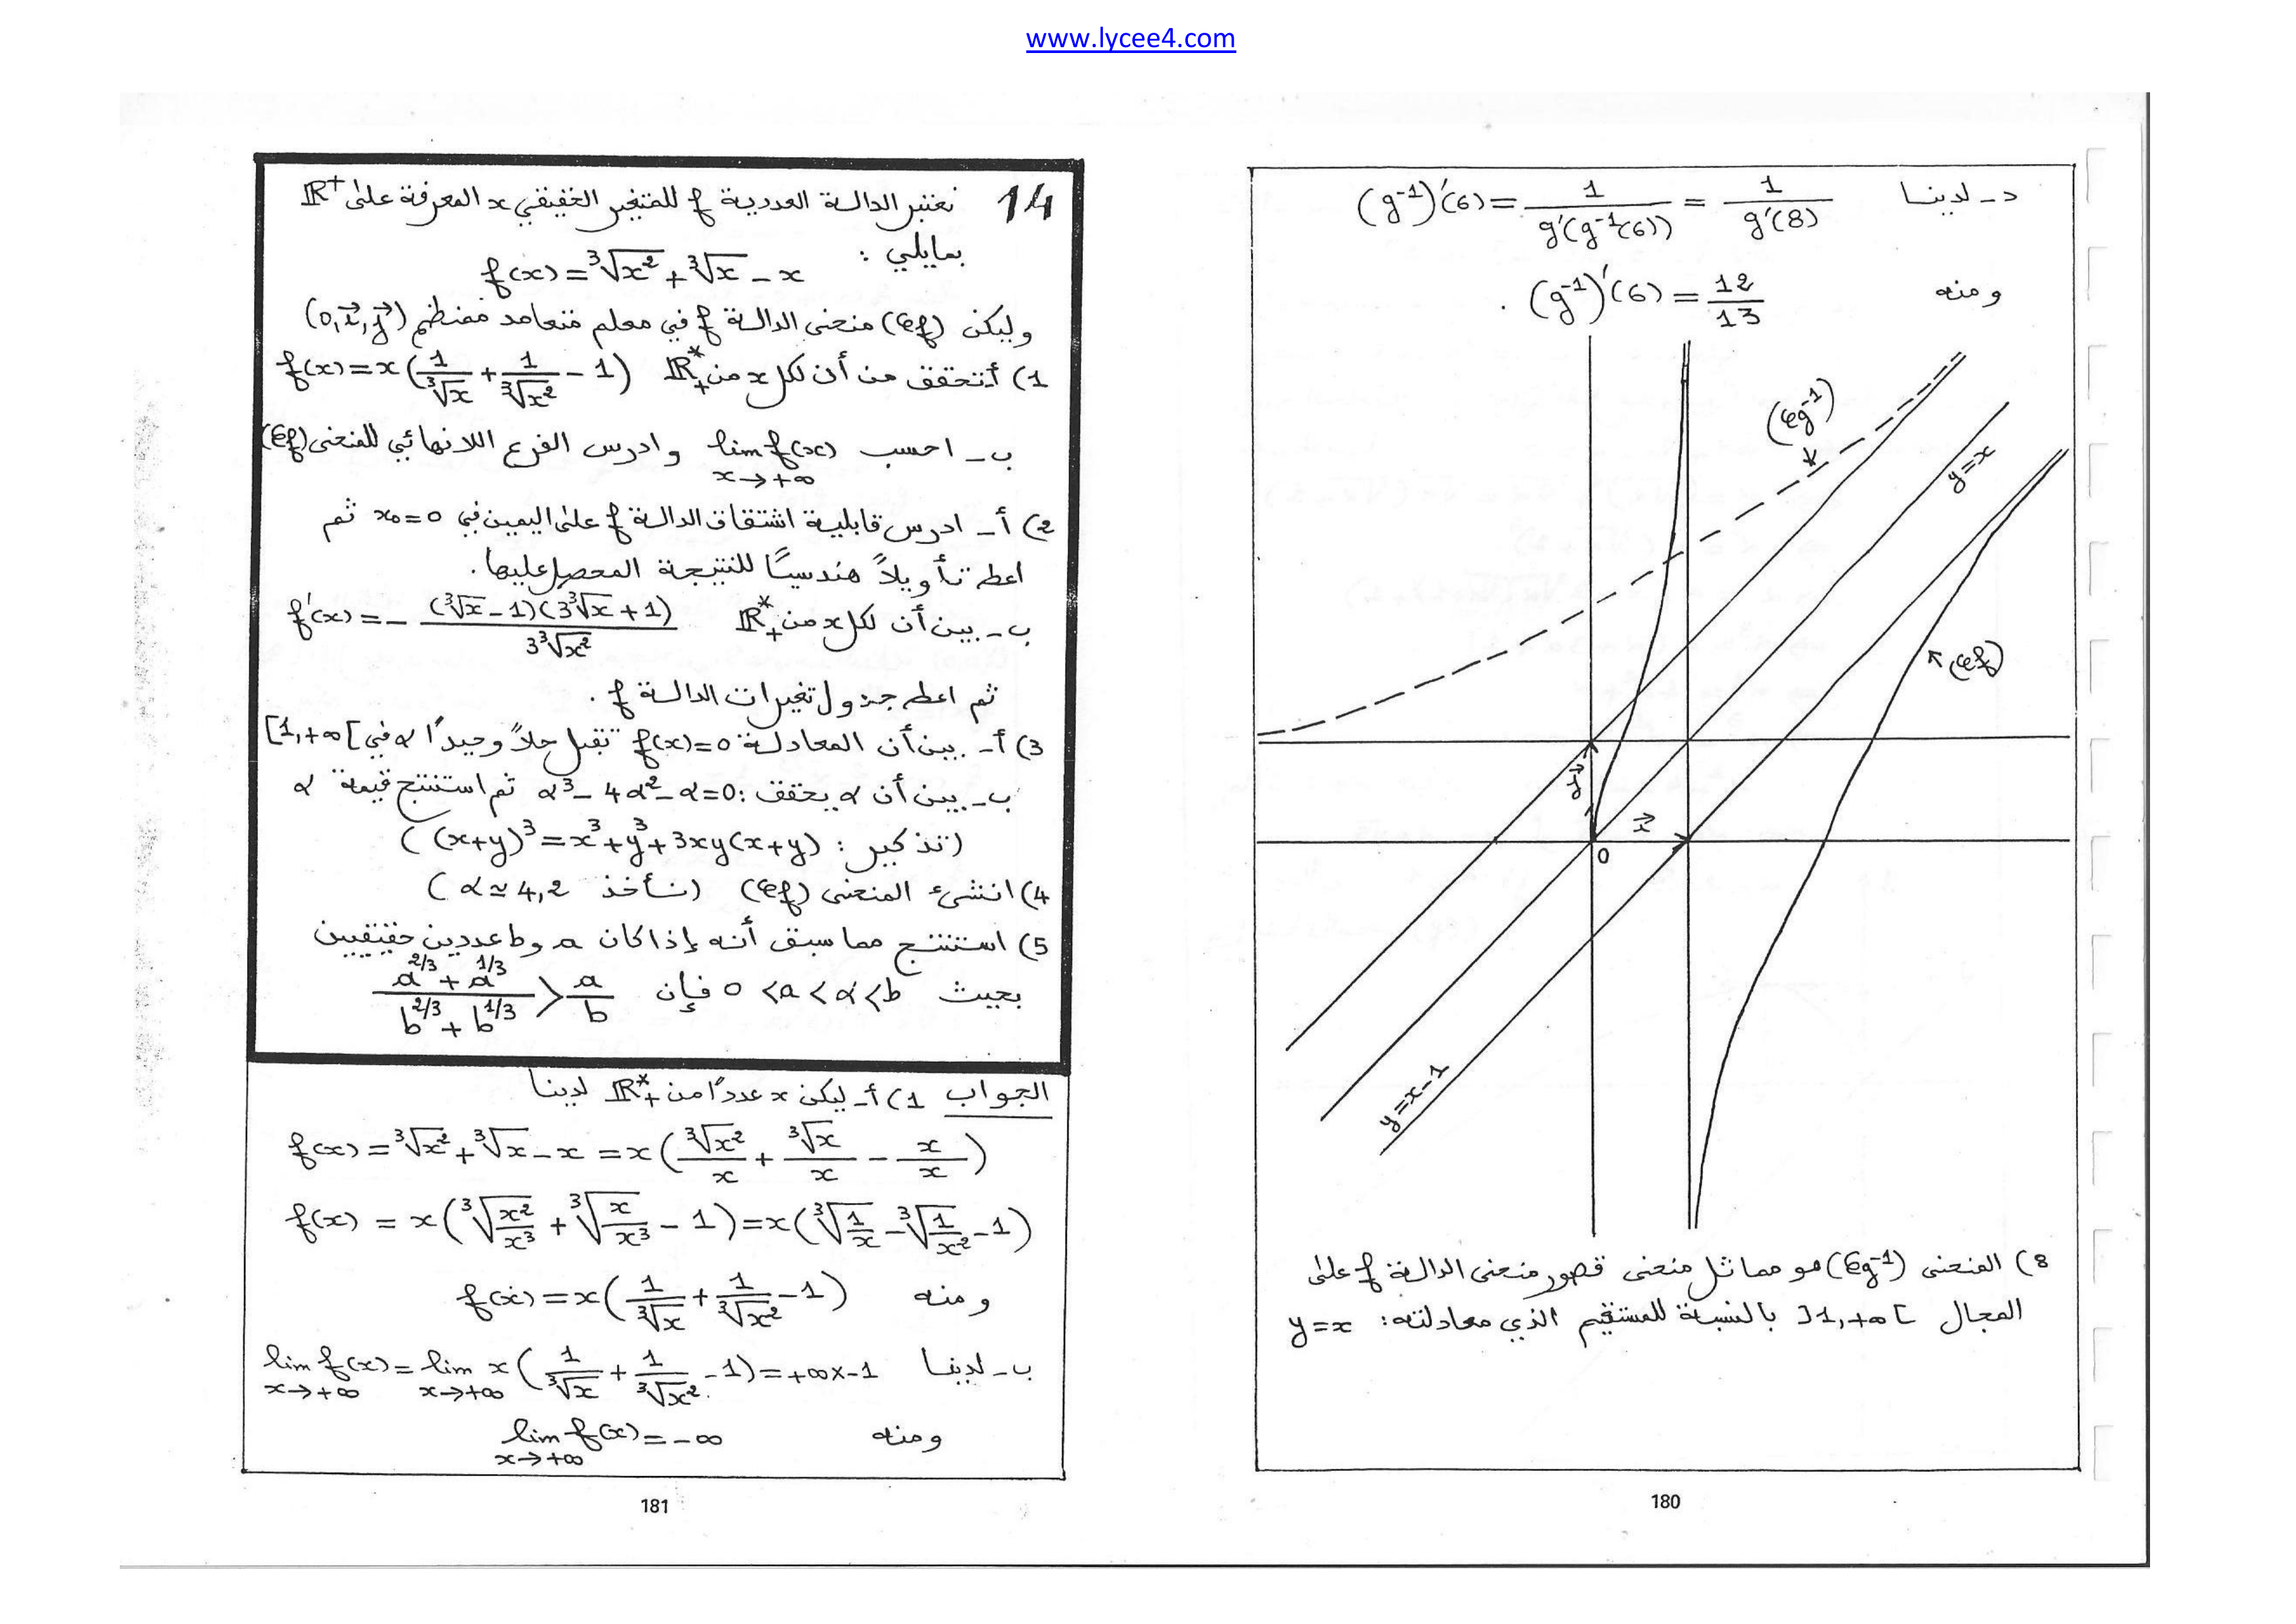 www.lycee4.com
د - لدينا (g⁻¹)'(6) = 1/g'(g⁻¹(6)) = 1/g'(8)
ومنه (g⁻¹)'(6) = 12/13 .
(𝒞g⁻¹)
y=x
(𝒞f)
j⃗
i⃗
0
y=x-1
8) المنحنى (𝒞g⁻¹) هو مماثل منحنى قصور منحنى الدالة f على
المجال ]1,+∞[ بالنسبة للمستقيم الذي معادلته: y=x
180
14 نعتبر الدالة العددية f للمتغير الحقيقي x المعرفة على ℝ⁺
بمايلي :
f(x) = ∛x² + ∛x - x
وليكن (𝒞f) منحنى الدالة f في معلم متعامد ممنظم (0,i⃗,j⃗)
1) أ- تحقق من أن لكل x من ℝ*₊ f(x) = x(1/∛x + 1/∛x² - 1)
ب - احسب lim f(x) x→+∞ وادرس الفرع اللانهائي للمنحنى (𝒞f)
2) أ - ادرس قابلية اشتقاق الدالة f على اليمين في x₀=0 ثم
اعط تأويلاً هندسيًا للنتيجة المحصل عليها.
ب - بين أن لكل x من ℝ*₊ f'(x) = - (∛x - 1)(3∛x + 1)/3∛x²
ثم اعط جدول تغيرات الدالة f .
3) أ - بين أن المعادلة f(x)=0 تقبل حلاً وحيدًا α في [1,+∞[
ب - بين أن α يحقق : α³ - 4α² - α = 0 ثم استنتج قيمة α
(تذكير : (x+y)³ = x³ + y³ + 3xy(x+y) )
4) انشئ المنحنى (𝒞f) (نأخذ α ≃ 4,2 )
5) استنتج مما سبق أنه إذا كان a و b عددين حقيقيين
بحيث 0 < a < α < b فإن (a^2/3 + a^1/3)/(b^2/3 + b^1/3) > a/b
الجواب 1) أ - ليكن x عددًا من ℝ*₊ لدينا
f(x) = ∛x² + ∛x - x = x(∛x²/x + ∛x/x - x/x)
f(x) = x(∛(x²/x³) + ∛(x/x³) - 1) = x(∛(1/x) - ∛(1/x²) - 1)
ومنه f(x) = x(1/∛x + 1/∛x² - 1)
ب - لدينا lim f(x) x→+∞ = lim x→+∞ x(1/∛x + 1/∛x² - 1) = +∞×-1
ومنه lim f(x) x→+∞ = -∞
181